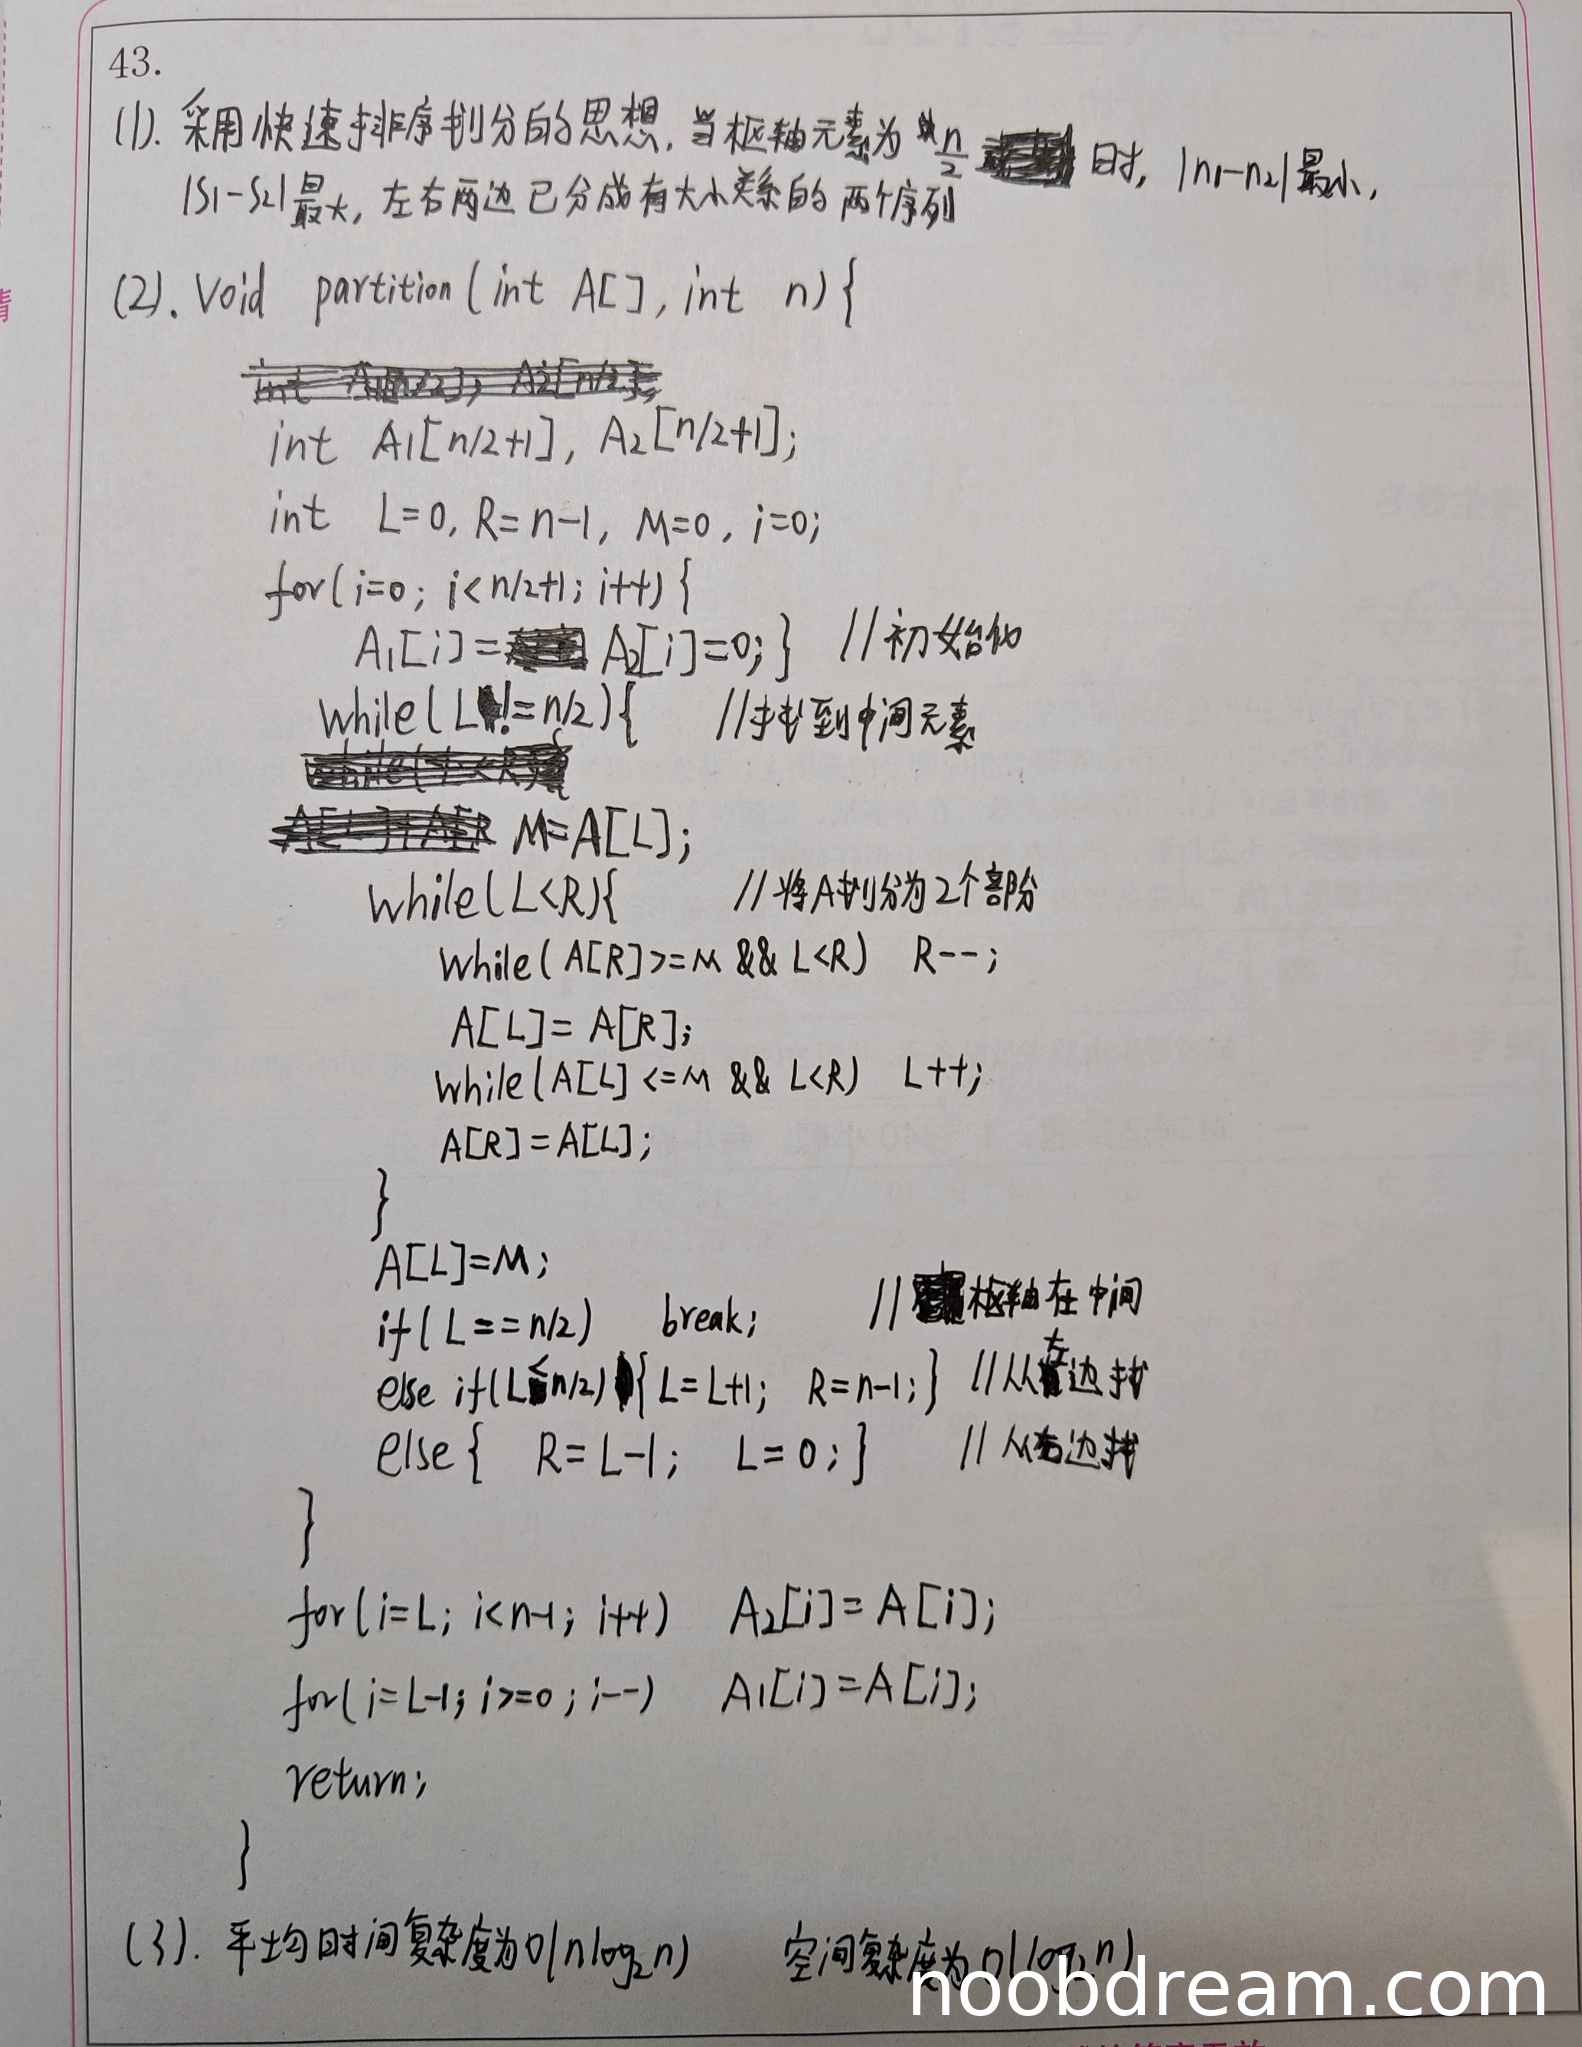 43.
(1). 采用快速排序划分的思想, 当枢轴元素为 n/2 时, |n₁-n₂|最小,
|S₁-S₂|最大, 左右两边已分成有大小关系的两个序列
(2). Void partition(int A[], int n){
int A₁[n/2+1], A₂[n/2+1];
int L=0, R=n-1, M=0, i=0;
for(i=0; i<n/2+1; i++){
A₁[i]= A₂[i]=0;} //初始化
while(L!=n/2){ //找到中间元素
M=A[L];
while(L<R){ //将A划分为2个部份
while(A[R]>=M && L<R) R--;
A[L]=A[R];
while(A[L]<=M && L<R) L++;
A[R]=A[L];
}
A[L]=M;
if(L==n/2) break; //枢轴在中间
else if(L<n/2){L=L+1; R=n-1;} //从左边找
else{ R=L-1; L=0;} //从右边找
}
for(i=L; i<n-1; i++) A₂[i]=A[i];
for(i=L-1; i>=0; i--) A₁[i]=A[i];
return;
}
(3). 平均时间复杂度为O(nlog₂n) 空间复杂度为O(log₂n)
noobdream.com